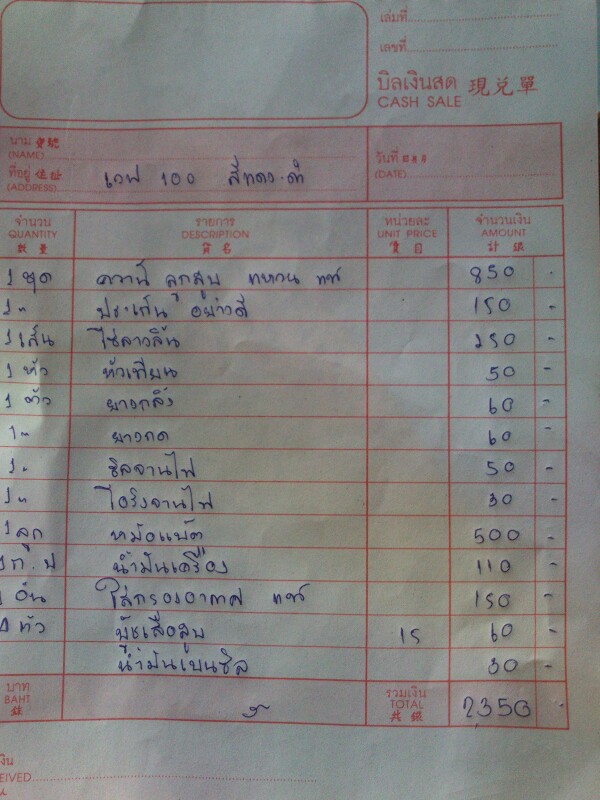 เล่มที่
เลขที่
บิลเงินสด 現兌單
CASH SALE
นาม
(NAME)
วันที่
(DATE)
ที่อยู่ 住址
(ADDRESS)
เวฟ 100 สีแดง-ดำ
จำนวน รายการ หน่วยละ จำนวนเงิน
QUANTITY DESCRIPTION UNIT PRICE AMOUNT
數量 貨名
1 ชุด ลูกสูบ แหวน แท้ 850 -
1 " ประเก็น อย่างดี 150 -
1 เส้น โซ่ลาวลิ้น 250 -
1 หัว หัวเทียน 50 -
1 ตัว ยางกลิ้ง 60 -
1 " ยางกด 60 -
1 " ซิลจานไฟ 50 -
1 " โอริงจานไฟ 30 -
1 ลูก หม้อแบต 500 -
น้ำมันเครื่อง 110 -
1 อัน ไส้กรองอากาศ แท้ 150 -
ตัว บู๊ชเสื้อสูบ 15 60 -
น้ำมันเบนซิล 30 -
บาท รวมเงิน
BAHT TOTAL 2,350 -